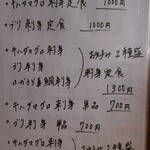 ・キハダマグロ刺身定食 1000円
・ブリ刺身定食 1000円
・キハダマグロ刺身
ブリ刺身
お好み2種盛
刺身定食
1300円
・キハダマグロ刺身 単品 700円
ブリ刺身 単品 700円
・キハダマグロ刺身